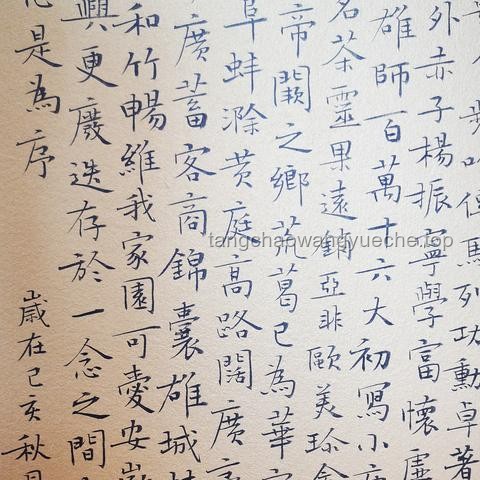 馬列功勳卓著
外赤子楊振寧學富懷虛
雄師百萬十六大初寫小
名茶靈果遠銷亞非歐美珍
帝闕之鄉荒葛已為華
阜蚌滁黃庭高路闊廣
廣蓄客商錦囊雄城
和竹暢維我家園可愛安
興更廢迭存於一念之間
是為序
歲在己亥秋
tangchaowangyueche.top